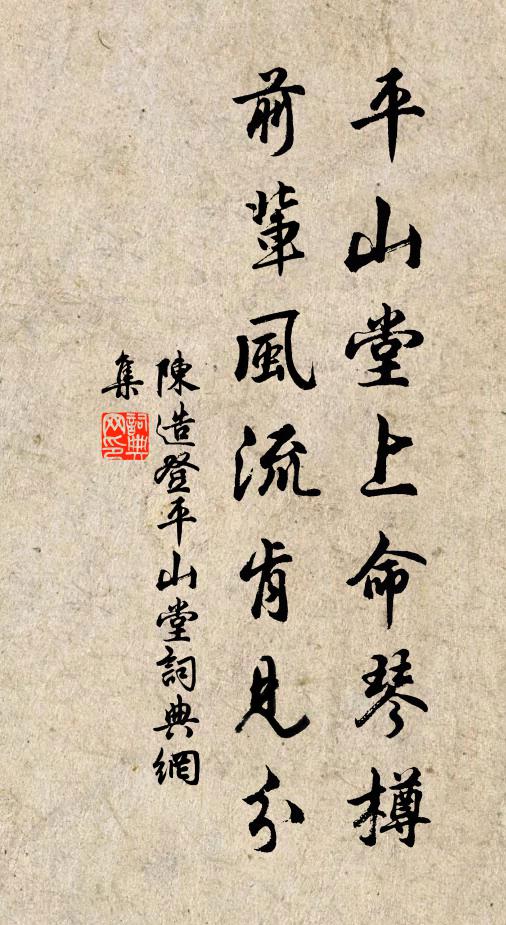 平山堂上命琴樽
前輩風流肯見分
陳造登平山堂詞典網
集
詞典网印